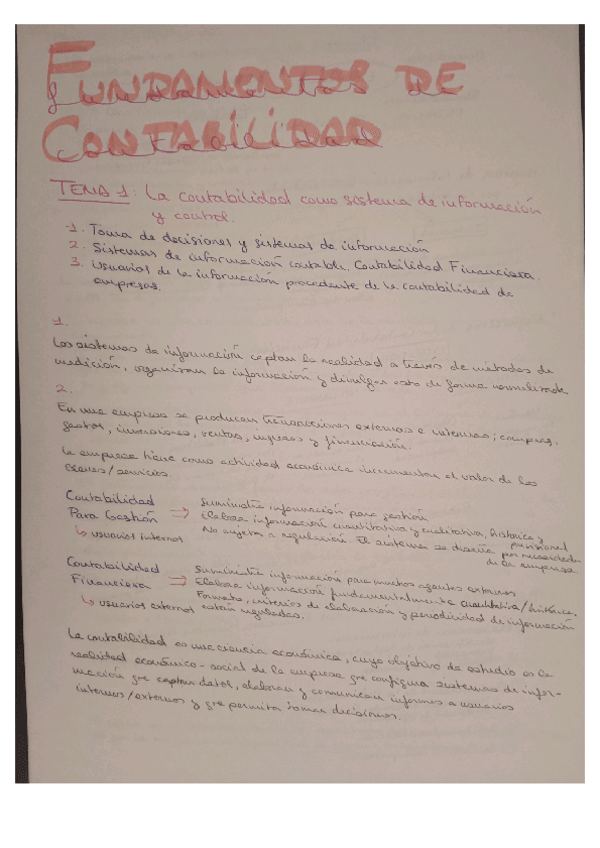 FUNDAMENTOS DE
CONTABILIDAD
TEMA 1: La contabilidad como sistema de información
y control.
1. Toma de decisiones y sistemas de información
2. Sistemas de información contable. Contabilidad Financiera.
3. Usuarios de la información procedente de la contabilidad de
empresas.
1.
Los sistemas de información captan la realidad a través de métodos de
medición, organizan la información y divulgan esto de forma normalizada
2.
En una empresa se producen transacciones externas e internas; compras,
gastos, inversiones, ventas, ingresos y financiación.
La empresa tiene como actividad económica incrementar el valor de los
bienes/servicios.
Contabilidad
Para Gestión
↳ usuarios internos
→ Suministra información para gestión
Elabora información cuantitativa y cualitativa, histórica y
previsional
No sujeta a regulación. El sistema se diseña por necesidades
de la empresa
Contabilidad
Financiera
↳ usuarios externos
→ Suministra información para muchos agentes externos
Elabora información fundamentalmente cuantitativa/histórica.
Formato, criterios de elaboración y periodicidad de información
están regulados.
La contabilidad es una ciencia económica, cuyo objetivo de estudio es la
realidad económico-social de la empresa que configura sistemas de infor-
mación que captan datos, elaboran y comunican informes a usuarios
internos/externos y que permita tomar decisiones.